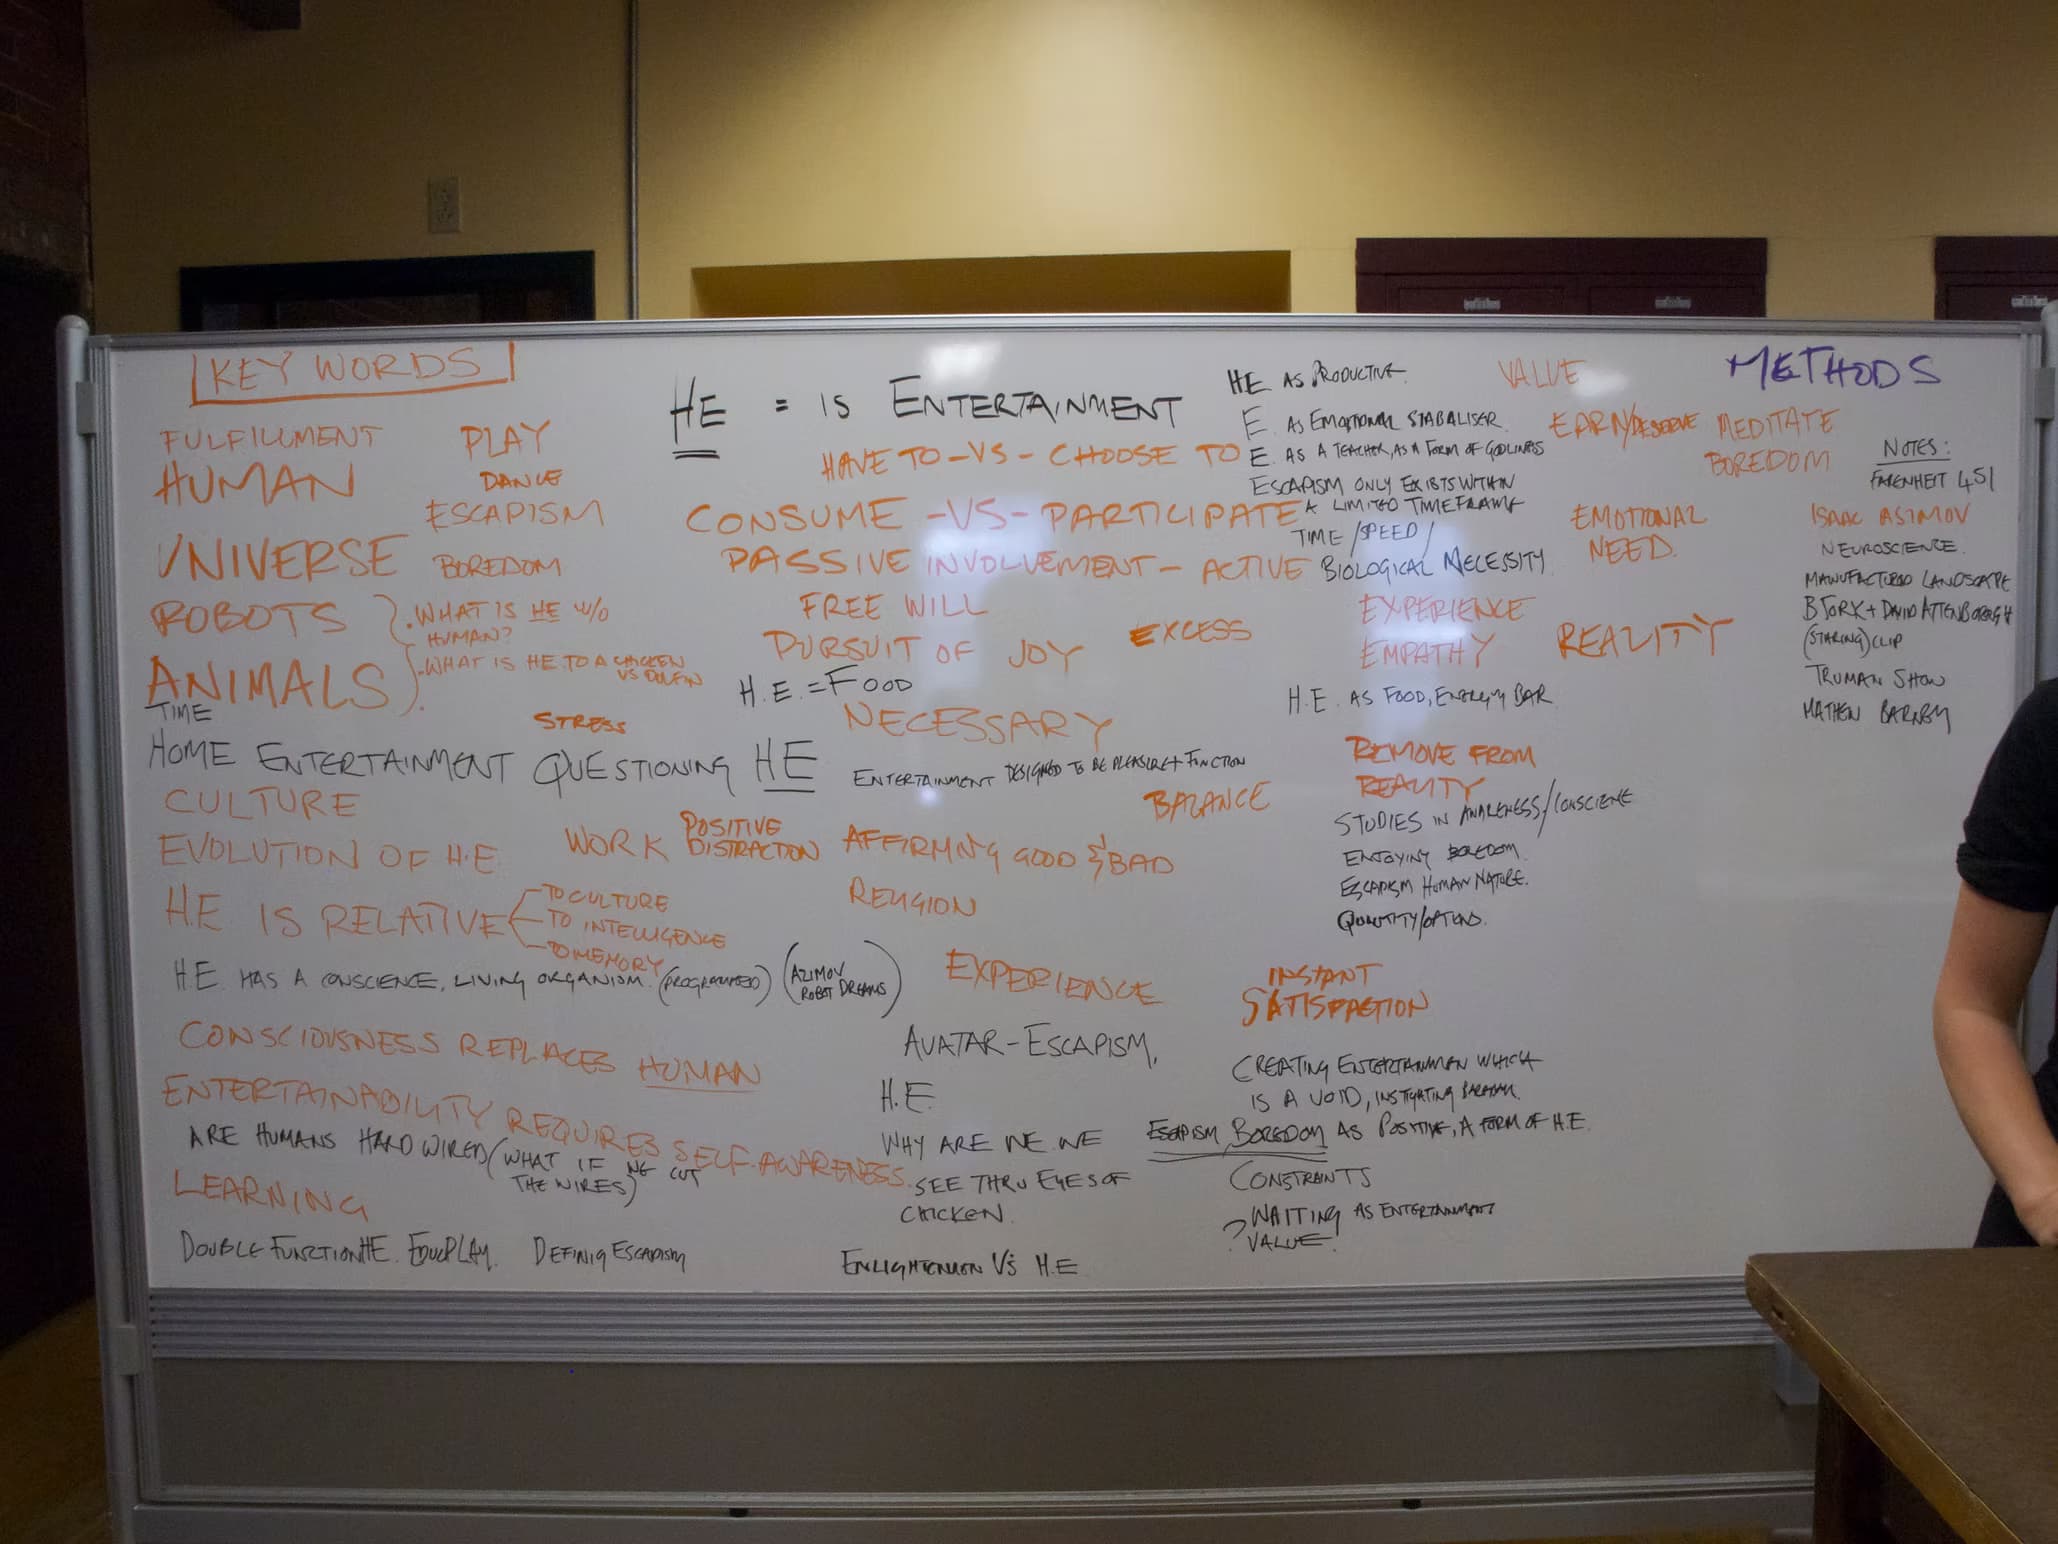 KEY WORDS
FULFILLMENT PLAY
HUMAN DANCE
ESCAPISM
UNIVERSE BOREDOM
ROBOTS
. WHAT IS HE W/O
HUMAN?
ANIMALS
- WHAT IS HE TO A CHICKEN
VS DOLFIN
TIME
STRESS
HOME ENTERTAINMENT QUESTIONING HE
CULTURE
EVOLUTION OF H.E.
WORK
POSITIVE
DISTRACTION
H.E. IS RELATIVE
TO CULTURE
TO INTELLIGENCE
TO MEMORY
H.E. HAS A CONSCIENCE, LIVING ORGANISM. (PROGRAMMED)
(AZIMOV
ROBOT DREAMS)
CONSCIOUSNESS REPLACES HUMAN
ENTERTAINABILITY REQUIRES SELF-AWARENESS.
ARE HUMANS HARD WIRED (WHAT IF WE CUT
THE WIRES)
LEARNING
DOUBLE FUNCTION HE. EDUCPLAY. DEFINIG ESCAPISM
HE = IS ENTERTAINMENT
HAVE TO -VS- CHOOSE TO
CONSUME -VS- PARTICIPATE
PASSIVE INVOLVEMENT - ACTIVE
FREE WILL
PURSUIT OF JOY EXCESS
H.E. = FOOD
NECESSARY
ENTERTAINMENT DESIGNED TO BE PLEASURE + FUNCTION
BALANCE
AFFIRMING GOOD & BAD
RELIGION
EXPERIENCE
AVATAR - ESCAPISM,
H.E.
WHY ARE WE WE
SEE THRU EYES OF
CHICKEN.
ENLIGHTENMEN VS H.E
HE AS PRODUCTIVE.
E. AS EMOTIONAL STABALISER.
E. AS A TEACHER, AS A FORM OF GODLINESS
ESCAPISM ONLY EXISTS WITHIN
A LIMITED TIMEFRAME
TIME /SPEED/
BIOLOGICAL NECESSITY
EXPERIENCE
EMPATHY
H.E. AS FOOD, ENERGY BAR.
REMOVE FROM
REALITY
STUDIES IN AWARENESS/CONSCIENE
ENJOYING BOREDOM.
ESCAPISM HUMAN NATURE.
QUANTITY/OPTIONS.
INSTANT
SATISFACTION
CREATING ENTERTAINMEN WHICH
IS A VOID, INSTIGATING
ESCAPISM, BOREDOM AS POSITIVE, A FORM OF H.E.
CONSTRAINTS
WAITING AS ENTERTAINMENT
? VALUE!
VALUE
EARN/DESERVE
EMOTIONAL
NEED.
REALITY
METHODS
MEDITATE
BOREDOM
NOTES:
FARENHEIT 451
ISAAC ASIMOV
NEUROSCIENCE.
MANUFACTURED LANDSCAPE
BJORK + DAVID ATTENBOROUGH
(STARING) CLIP
TRUMAN SHOW
MATHEW BARNEY